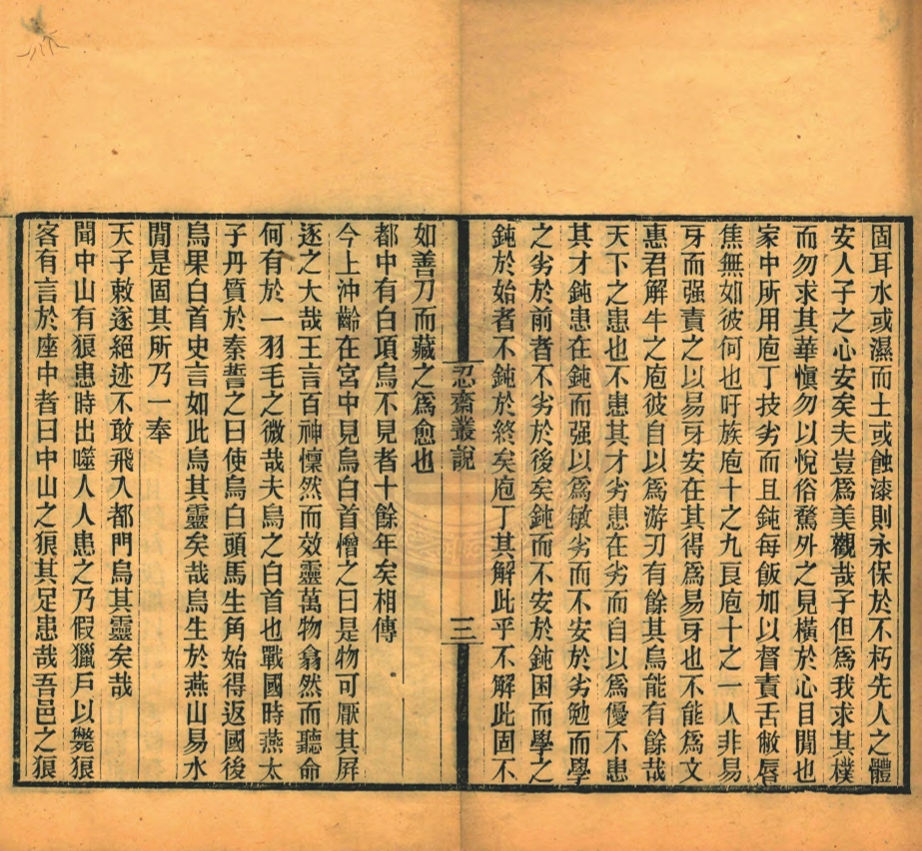 固耳水或濕而土或蝕漆則永保於不朽先人之體
安人子之心安矣夫豈爲美觀哉子但爲我求其樸
而勿求其華愼勿以悅俗騖外之見橫於心目閒也
家中所用庖丁技劣而且鈍每飯加以督責舌敝唇
焦無如彼何也吁族庖十之九良庖十之一人非易
牙而强責之以易牙安在其得爲易牙也不能爲文
惠君解牛之庖彼自以爲游刃有餘其烏能有餘哉
天下之患也不患其才劣患在劣而自以爲優不患
其才鈍患在鈍而强以爲敏劣而不安於劣勉而學
之劣於前者不劣於後矣鈍而不安於鈍困而學之
鈍於始者不鈍於終矣庖丁其解此乎不解此固不
忍齋叢說
三
如善刀而藏之爲愈也
都中有白項烏不見者十餘年矣相傳
今上沖齡在宮中見烏白首憎之曰是物可厭其屏
逐之大哉王言百神懍然而效靈萬物翕然而聽命
何有於一羽毛之微哉夫烏之白首也戰國時燕太
子丹質於秦誓之曰使烏白頭馬生角始得返國後
烏果白首史言如此烏其靈矣哉烏生於燕山易水
閒是固其所乃一奉
天子敕逐絕迹不敢飛入都門烏其靈矣哉
聞中山有狼患時出噬人人患之乃假獵戶以斃狼
客有言於座中者曰中山之狼其足患哉吾邑之狼